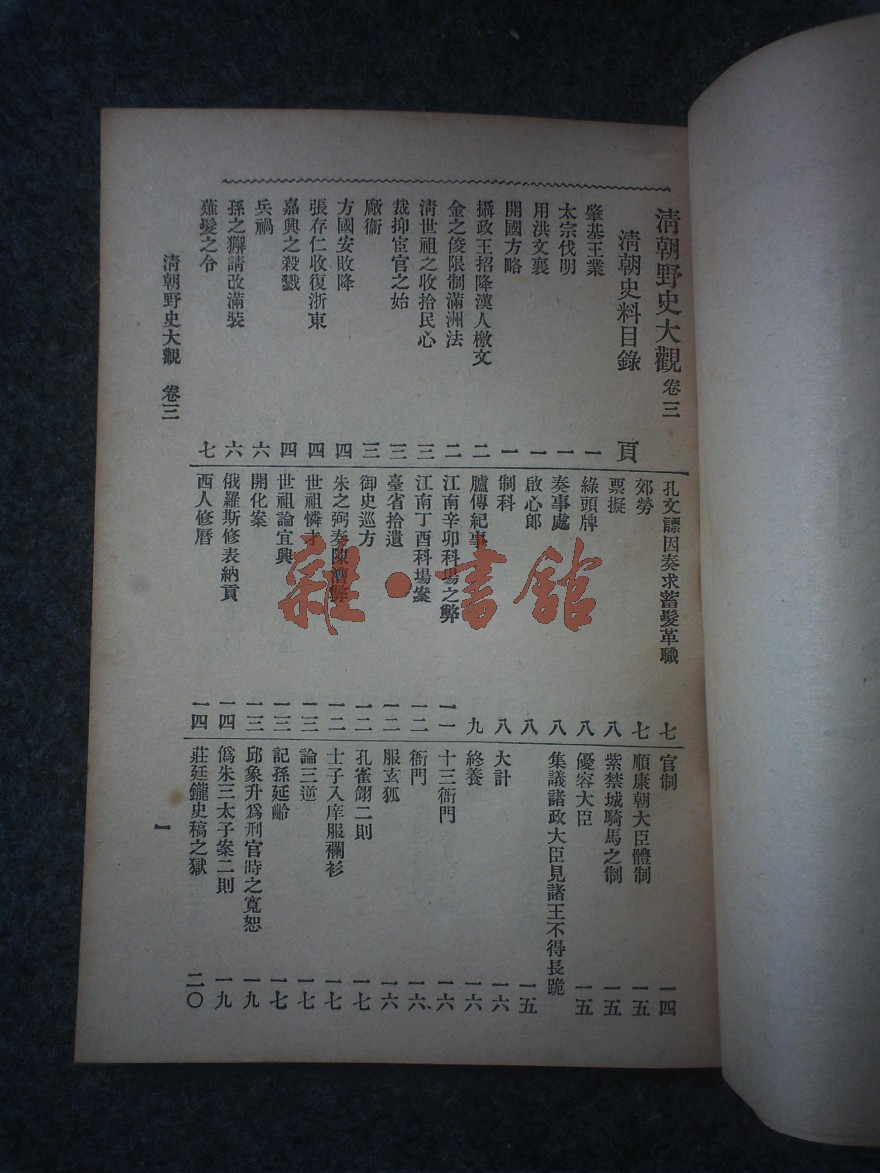 清朝野史大觀 卷三
清朝史料目錄
頁
肇基王業 一
太宗伐明 一
用洪文襄 一
開國方略 一
攝政王招降漢人檄文 二
金之俊限制滿洲法 二
清世祖之收拾民心 三
裁抑宦官之始 三
廠衞 三
方國安敗降 四
張存仁收復浙東 四
嘉興之殺戮 四
兵禍 六
孫之獬請改滿裝 六
薙髮之令 七
孔文謤因奏求蓄髮革職 七
郊勞 七
票擬 八
綠頭牌 八
奏事處 八
啟心郎 八
制科 八
臚傳紀事 九
江南辛卯科場之弊 一一
江南丁酉科場案 一二
臺省拾遺 一二
御史巡方 一二
朱之弼奏陳漕弊 一二
世祖憐才 一三
世祖論宜興 一三
開化案 一三
俄羅斯修表納貢 一四
西人修曆 一四
官制 一四
順康朝大臣體制 一五
紫禁城騎馬之制 一五
優容大臣 一五
集議諸政大臣見諸王不得長跪 一五
大計 一六
終養 一六
十三衙門 一六
衙門 一六
服玄狐 一六
孔雀翎二則 一七
士子入庠服襴衫 一七
論三逆 一七
記孫延齡 一七
邱象升爲刑官時之寬恕 一九
僞朱三太子案二則 一九
莊廷鑨史稿之獄 二〇
清朝野史大觀 卷三
一
雜·書館